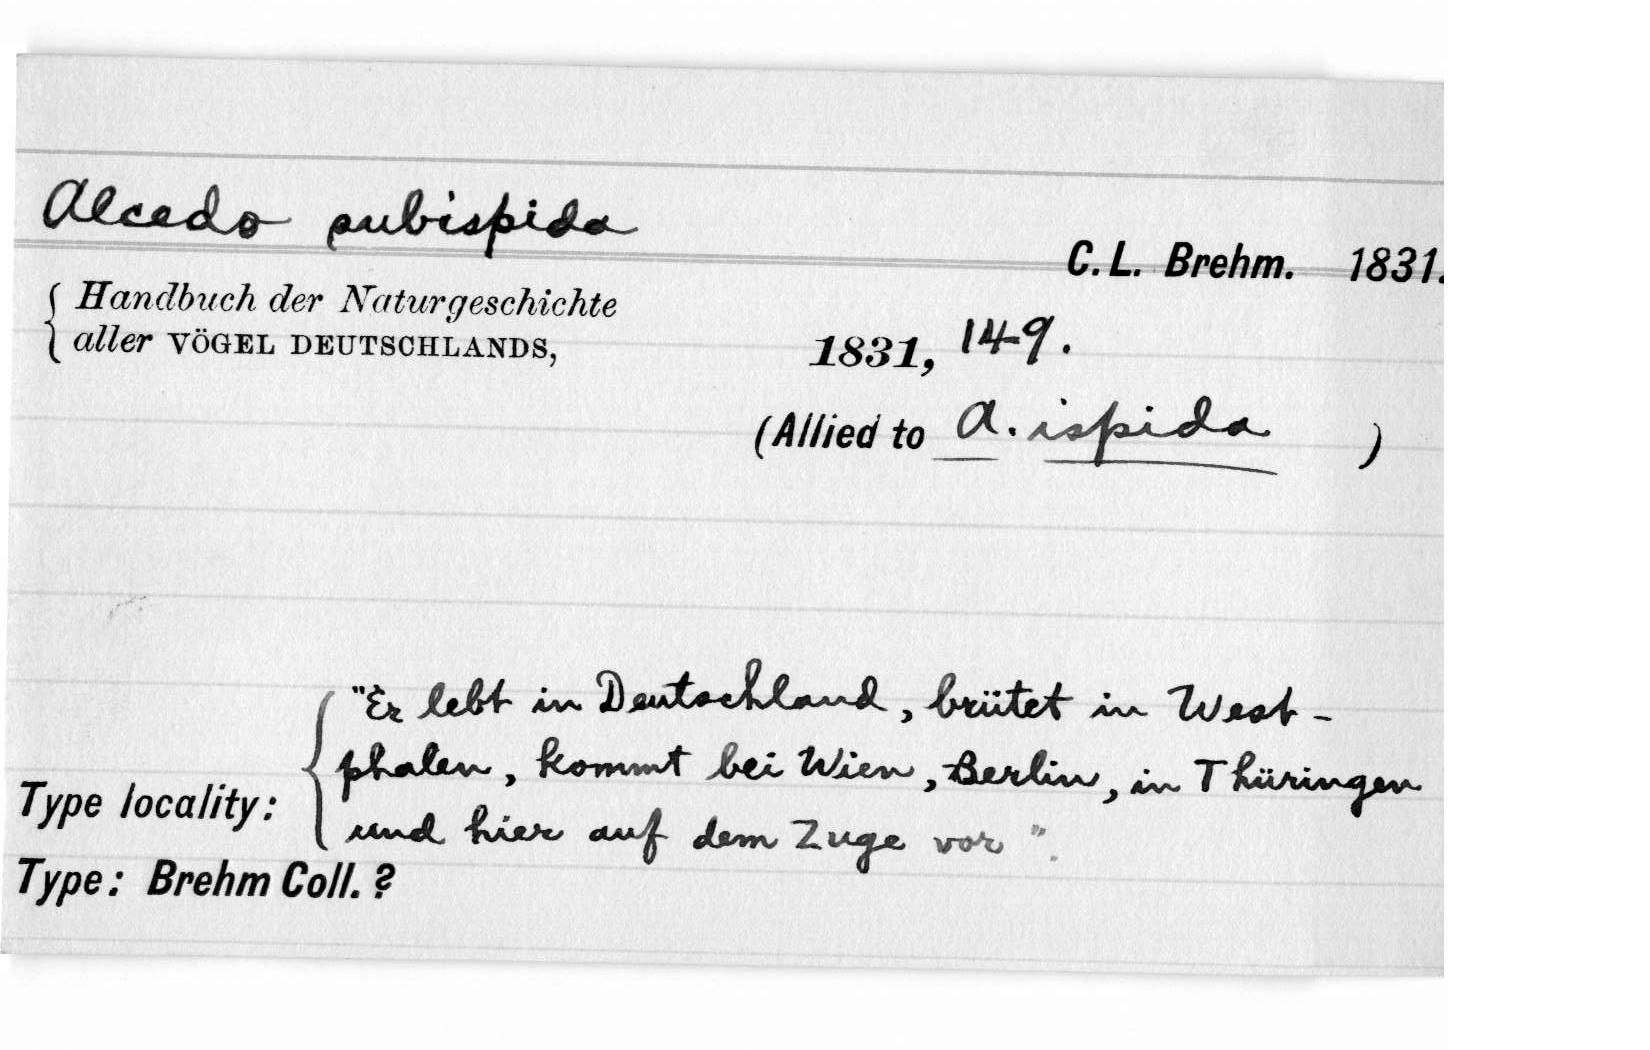 Alcedo subispida
C. L. Brehm. 1831.
Handbuch der Naturgeschichte
aller VÖGEL DEUTSCHLANDS,
1831, 149.
(Allied to A. ispida )
"Er lebt in Deutschland, brütet in West-
phalen, kommt bei Wien, Berlin, in Thüringen
Type locality: und hier auf dem Zuge vor".
Type: Brehm Coll. ?